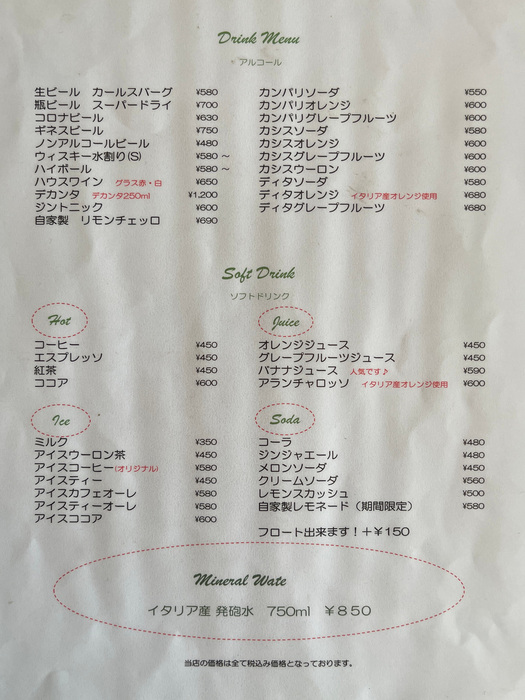 Drink Menu
アルコール
生ビール　カールスバーグ ¥580
瓶ビール　スーパードライ ¥700
コロナビール ¥630
ギネスビール ¥750
ノンアルコールビール ¥480
ウィスキー水割り(S) ¥580 ～
ハイボール ¥580 ～
ハウスワイン グラス赤・白 ¥650
デカンタ デカンタ250ml ¥1,200
ジントニック ¥600
自家製　リモンチェッロ ¥690
カンパリソーダ ¥550
カンパリオレンジ ¥600
カンパリグレープフルーツ ¥600
カシスソーダ ¥580
カシスオレンジ ¥600
カシスグレープフルーツ ¥600
カシスウーロン ¥600
ディタソーダ ¥580
ディタオレンジ イタリア産オレンジ使用 ¥680
ディタグレープフルーツ ¥680
Soft Drink
ソフトドリンク
Hot
コーヒー ¥450
エスプレッソ ¥450
紅茶 ¥450
ココア ¥600
Juice
オレンジジュース ¥450
グレープフルーツジュース ¥450
バナナジュース 人気です♪ ¥590
アランチャロッソ イタリア産オレンジ使用 ¥600
Ice
ミルク ¥350
アイスウーロン茶 ¥450
アイスコーヒー(オリジナル) ¥580
アイスティー ¥450
アイスカフェオーレ ¥580
アイスティーオーレ ¥580
アイスココア ¥600
Soda
コーラ ¥480
ジンジャエール ¥480
メロンソーダ ¥450
クリームソーダ ¥560
レモンスカッシュ ¥500
自家製レモネード（期間限定） ¥580
フロート出来ます！＋￥150
Mineral Wate
イタリア産 発砲水　750ml　￥850
当店の価格は全て税込み価格となっております。